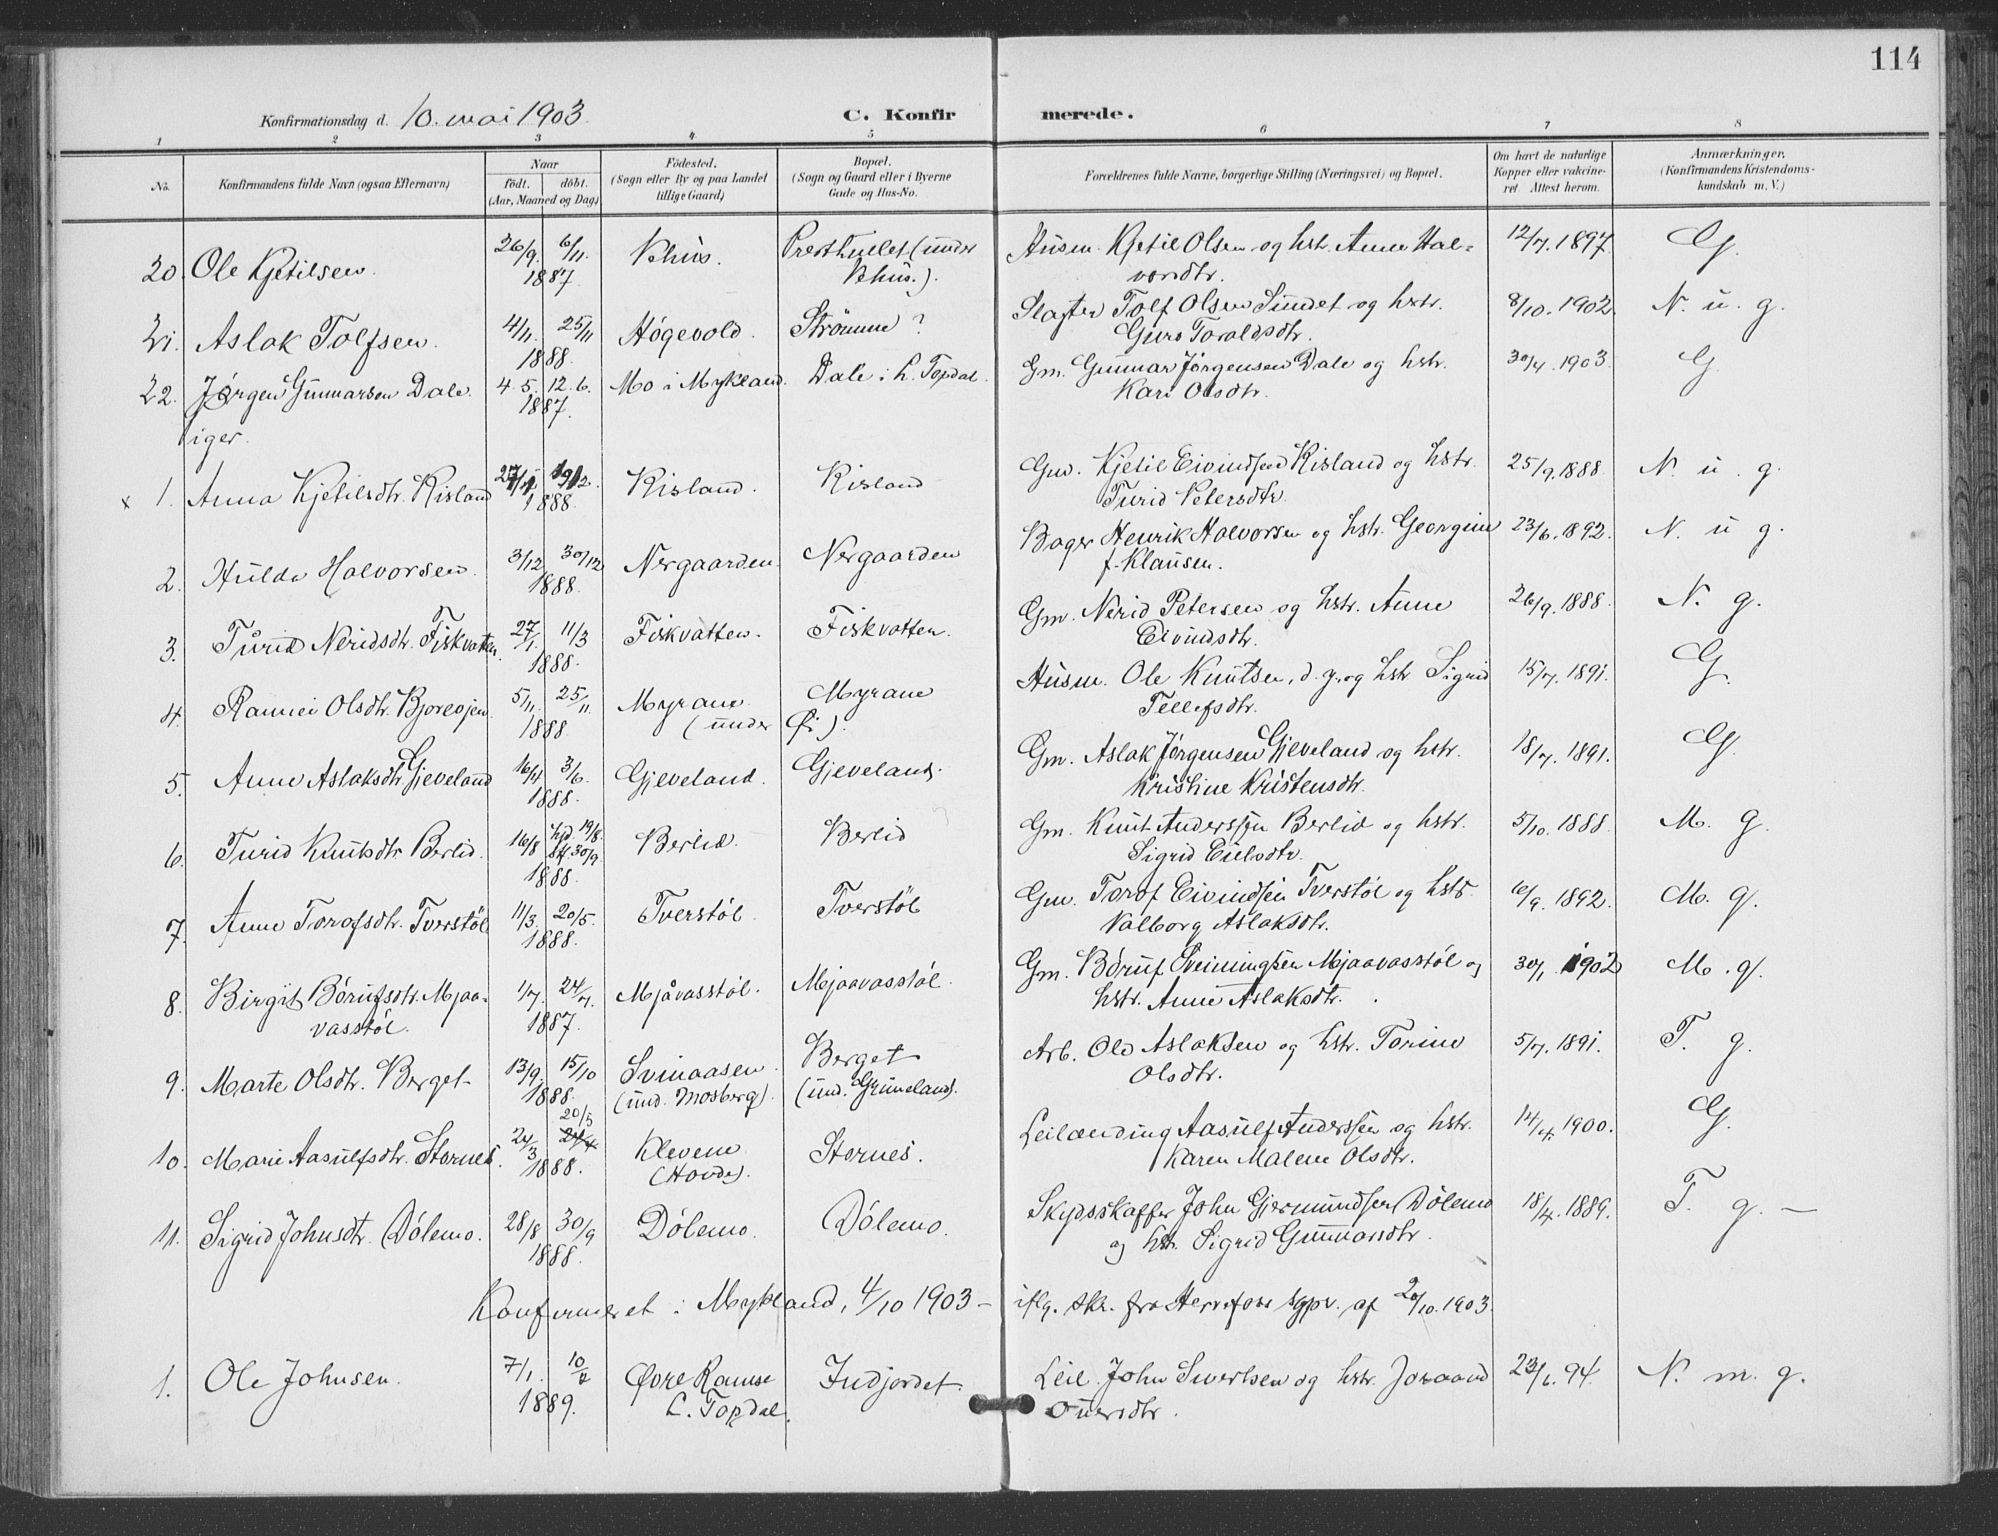 114
Konfirmationsdag d. 10. mai 1903
C. Konfirmerede.
1 2 3 4 5 6 7 8
No. Konfirmandens fulde Navn (ogsaa Efternavn) Naar født. døbt. (Aar, Maaned og Dag) Fødested. (Sogn eller By og paa Landet tillige Gaard) Bopæl. (Sogn og Gaard eller i Byerne Gade og Hus-No. Forældrenes fulde Navne, borgerlige Stilling (Næringsvei) og Bopæl. Om havt de naturlige Kopper eller vakcineret Attest herom. Anmærkninger. (Konfirmandens Kristendomskundskab m. V.)
20. Ole Kjetilsen. 26/9. 6/11 Vehus. Presthullet (under Husm. Kjetil Olsen og hstr. Anne Hal- 12/7. 1897. G.
1887. Vehus.). vorsdtr.
21. Aslak Tolfsen. 4/11. 25/11 Høgevold. Strömme ? Slagter Tolf Olsen Sundet og hstr. 8/10. 1902. N. u. g.
1888. Guro Toraldsdtr.
22. Jørgen Gunnarsen Dale. 4. 5. 12. 6. Mo i Mykland. Dale i L. Topdal. Gm. Gunnar Jørgensen Dale og hstr. 30/4. 1903. G.
1887. Kari Olsdtr.
iger.
x 1. Anna Kjetilsdtr. Risland Risland. Risland Gm. Kjetil Eivindsen Risland og hstr. 25/9. 1888. N. u. g.
1888. Turid Petersdtr.
2. Hulda Halvorsen. 3/12 30/12 Nergaarden. Nergaarden Bager Henrik Halvorsen og hstr. Georgine 23/6. 1892. N. u g.
1888. f. Klausen.
3. Turid Neridsdtr. Fiskvatten. 27/1. 11/3 Fiskvatten. Fiskvatten. Gm. Nerid Petersen og hstr. Anne 26/9. 1888. N. g.
1888. Eivindsdtr.
4. Rannei Olsdtr. Bjorevjen. 5/11. 25/11. Myrane Myrane Husm. Ole Knutsen, d. y. og hstr Sigrid 15/7. 1891. G.
1888 (under Øi). Tellefsdtr.
5. Anne Aslaksdtr. Gjeveland 16/4 3/6. Gjeveland. Gjeveland. Gm. Aslak Jørgensen Gjeveland og hstr. 18/7. 1891. G.
1888. Kristine Kristensdtr.
6. Turid Knutsdtr. Berlid. 16/8 hjd. 19/8. stf. 30/9. Berlid. Berlid Gm. Knut Anderssen Berlid og hstr. 5/10. 1888. M. g.
1888. Sigrid Eielvsdtr.
7. Anne Torofsdtr. Tverstöl 11/3. 20/5. Tverstöl. Tverstöl Gm. Torof Eivindsen Tverstöl og hstr. 10/9. 1892. M. g.
1888. Valborg Aslaksdtr.
8. Birgit Børufsdtr. Mjaa- 1/7. 24/7. Mjåvasstöl. Mjaavasstöl. Gm. Børuf Sveinungsen Mjaavasstöl og 30/1. 1902 M. g.
vasstöl. 1887. hstr. Anne Aslaksdtr.
9. Marte Olsdtr. Berget 13/9. 15/10 Svinaasen. Berget Arb. Ole Aslaksen og hstr. Torine 5/7. 1891. T. g.
1888. (und. Mosberg). (und. Gruneland). Olsdtr.
10. Marie Aasulfsdtr. Stornes. 24/3 20/5 Klevene Stornes. Leilænding Aasulf Anderssen og hstr. 14/4. 1900. G.
1888. (Hovde). Karen Malene Olsdtr.
11. Sigrid Johnsdtr. Dölemo. 28/8 30/9 Dölemo. Dölemo. Skydsskaffer John Gjermundsen Dölemo 18/4. 1889. T. g. –
1888. og hstr. Sigrid Gunnarsdtr.
Konfirmeret i Mykland, 4/10 1903 – iflg. skr. fra Herefoss sgpr. af 20/10. 1903.
1. Ole Johnsen. 7/1. 10/2 Øvre Ramse Indjordet. Leil. John Sivertsen og hstr. Joraand 23/6. 94. N. m. g.
1889. L. Topdal.